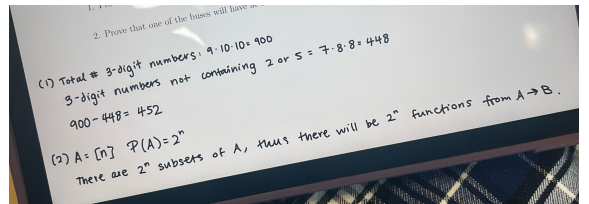 2. Prove that one of the buses will have
(1) Total # 3-digit numbers: 9·10·10 = 900
3-digit numbers not containing 2 or 5 = 7·8·8 = 448
900 - 448 = 452
(2) A = [n] P(A) = 2ⁿ
There are 2ⁿ subsets of A, thus there will be 2ⁿ functions from A → B.